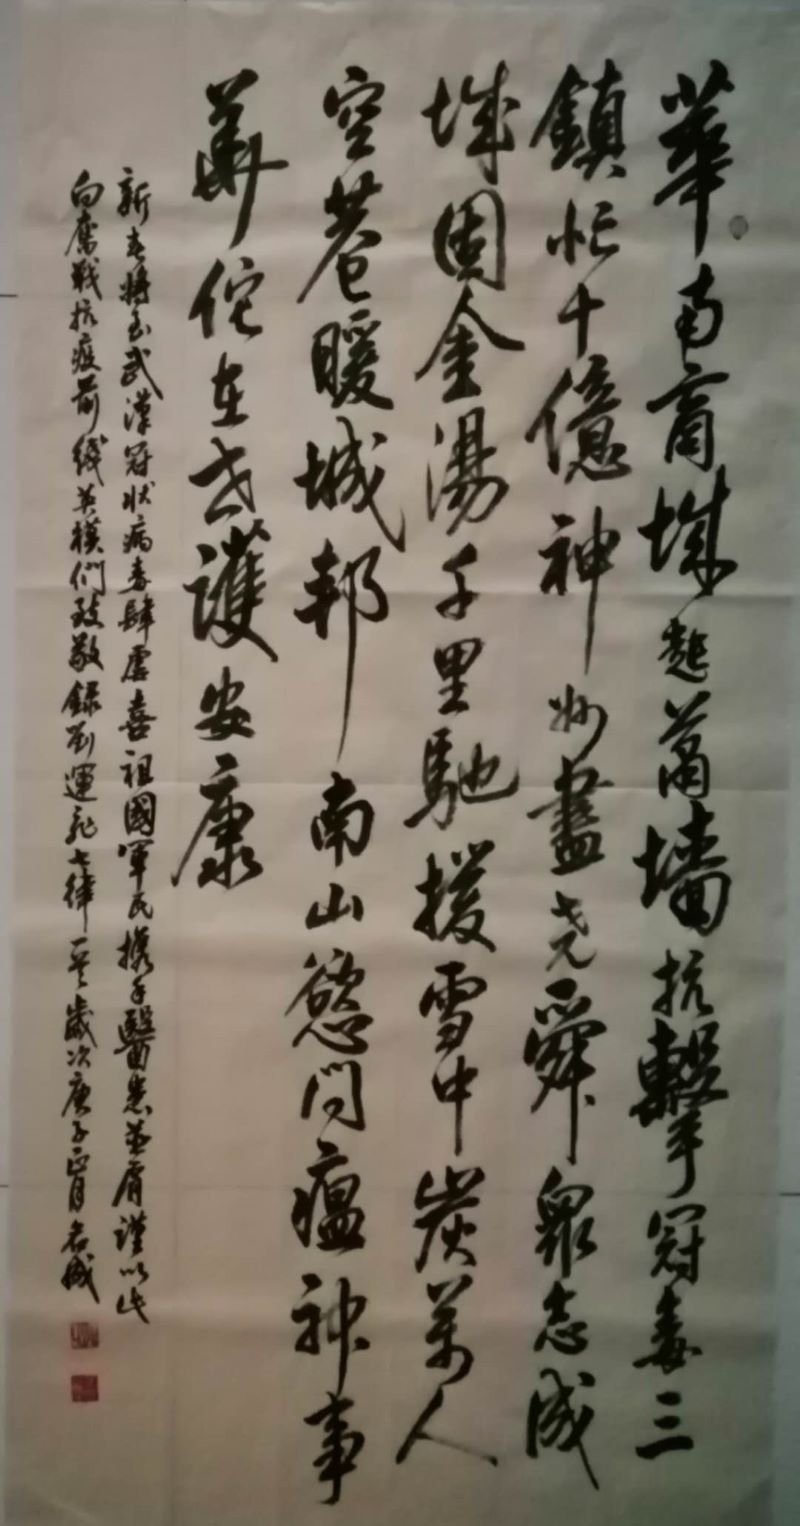 華南商城起蕭墻抗擊冠毒三
鎮忙十億神州盡尧舜眾志成
城固金湯千里馳援雪中炭萬人
空巷暖城邦南山慾問瘟神事
華佗在世護安康
新春將至武漢冠狀病毒肆虐喜祖國軍民携手醫患並肩謹以此
向奮戰抗疫前綫英模們致敬錄劉運龙七律一首歲次庚子正月名城